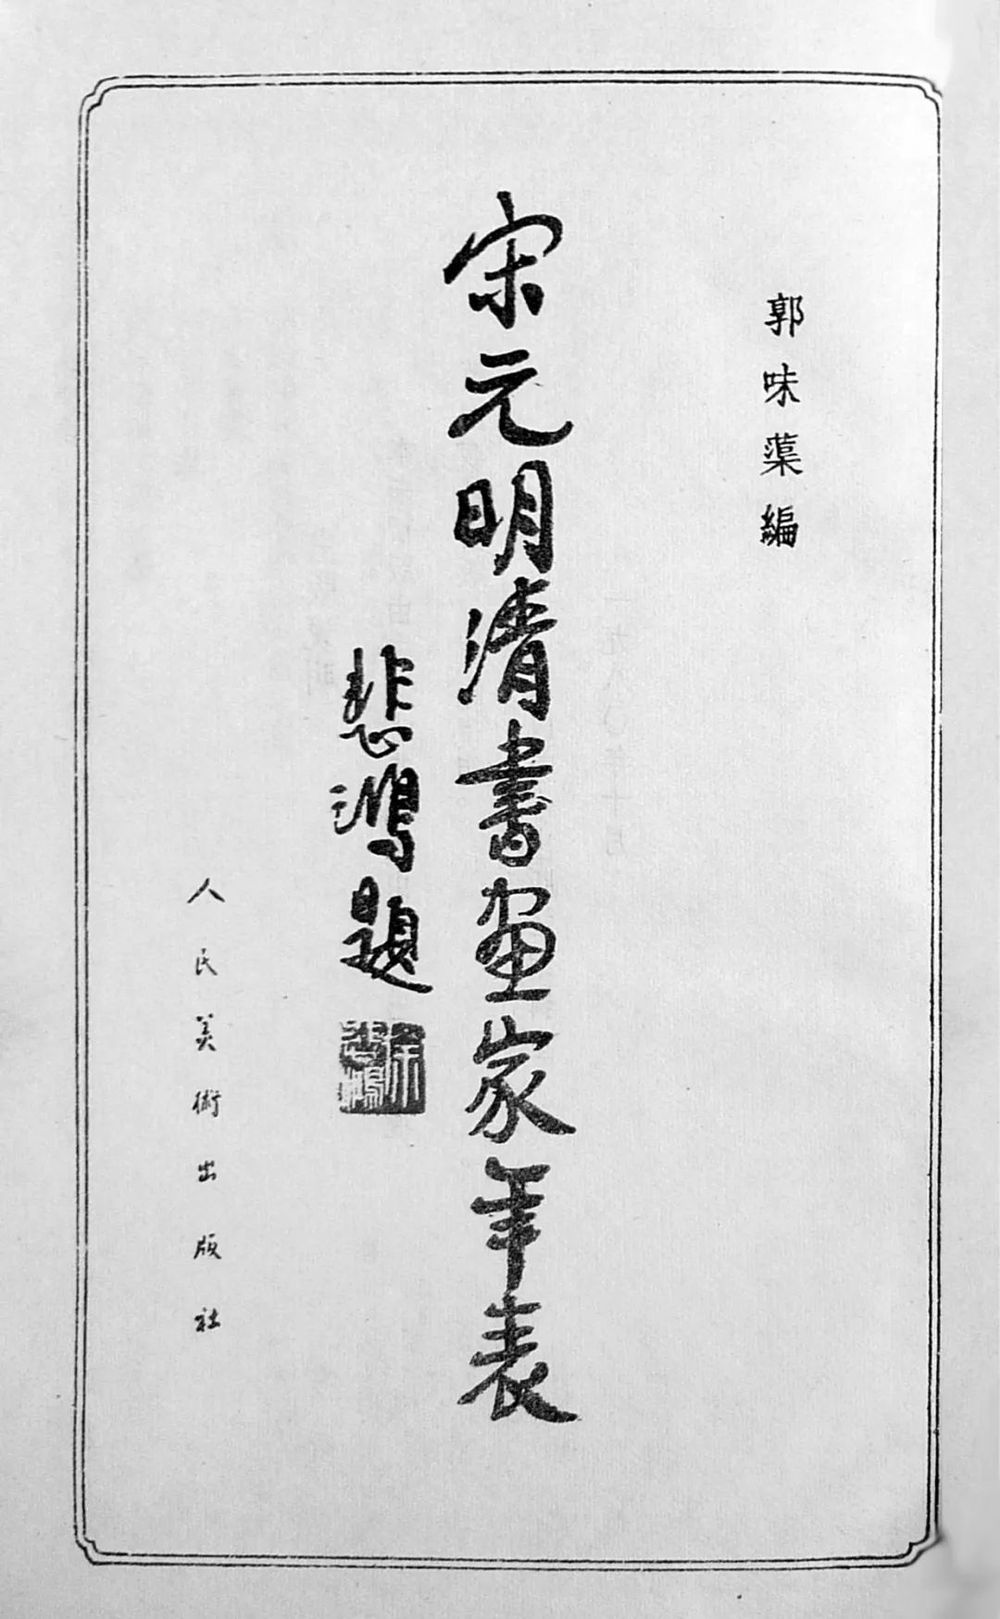 郭味蕖編
宋元明清書画家年表
悲鴻題
徐悲鴻
人民美術出版社